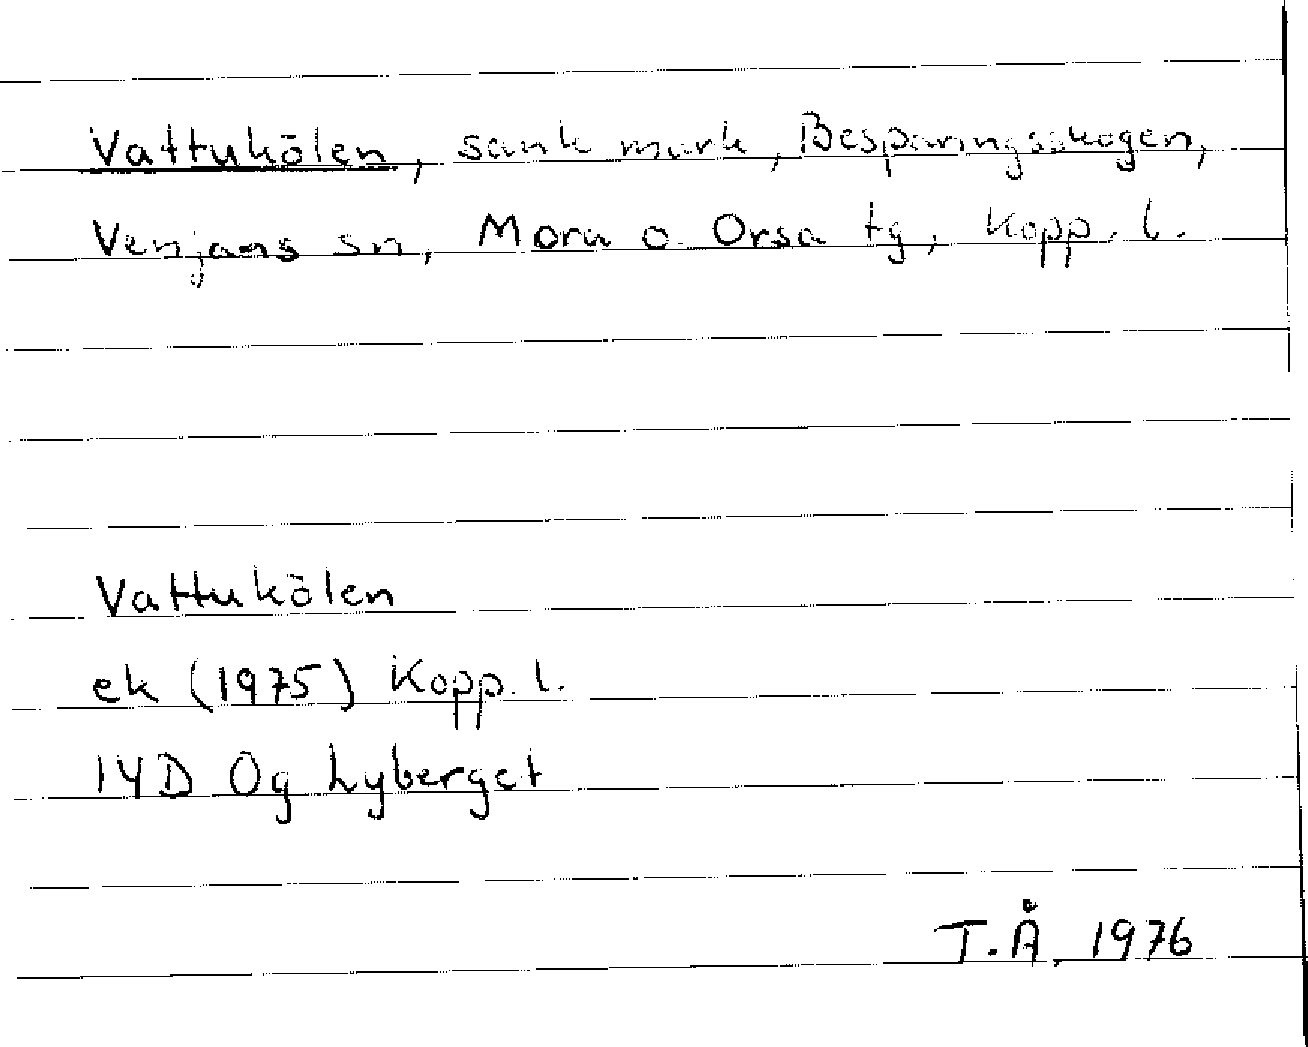 Vattukölen, sank mark, Besparingsskogen,
Venjans sn, Mora o Orsa tg, Kopp. l.
Vattukölen
ek (1975) Kopp. l.
14D 0g Lyberget
T.Å. 1976